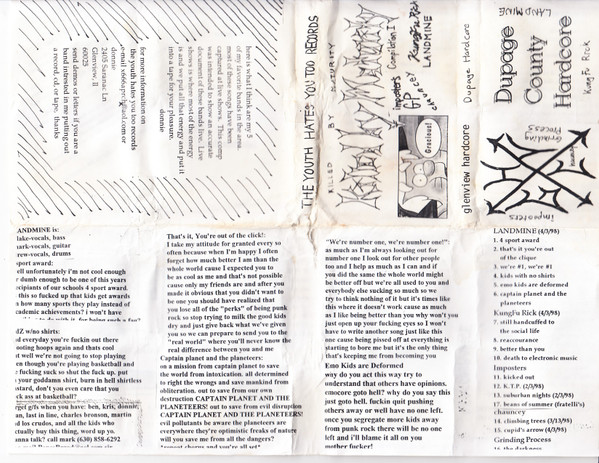 here is what I think are my 5
of my favorite bands in the area.
most of these songs have been
captured at live shows. This comp
was intended to be an accurate
document of these bands live. Live
shows is where most of the energy
is and we put all that energy and put it
into a tape for your pleasure.
donnie
for more information on
the youth hates you too records
donnie
2405 Saranac Ln
Glenview, Il
60025
send demos or letters if you are a
band intrested in me putting out
a record, cd, or tape. thanks
THE YOUTH HATES YOU TOO RECORDS
KILLED BY
Compilation
Imposters
KungFu Rick
LANDMINE
Gracious!
glenview hardcore
Dupage Hardcore
LANDMINE
Dupage
County
Hardcore
KungFu Rick
Grinding
Process
imposters
LANDMINE is:
lake-vocals, bass
ark-vocals, guitar
rew-vocals, drums
sport award:
ell unfortunately i'm not cool enough
dumb enough to be one of this years
ecipants of our schools 4 sport award.
this so fucked up that kids get awards
s how many sports they play instead of
cademic achievements? i won't have
dZ w/no shirts:
d everyday you're fuckin out there
ooting hoops again and thats cool
t well we're not going to stop playing
en though you're playing basketball and
fucking sick so shut the fuck up. put
your goddamn shirt, burn in hell shirtless
stard, don't you even care that you
ck ass at basketball?
rget gifs when you have: ben, kris, donnie,
an, last in line, charles bronson, martin
d los crudos, and all the kids who
ctually buy this thing, word up yo.
anna talk? call mark (630) 858-6292
That's it, You're out of the click!:
I take my attitude for granted every so
often because when I'm happy I often
forget how much better I am than the
whole world cause I expected you to
be as cool as me and that's not possible
cause only my friends are and after you
made it obvious that you didn't want to
be one you should have realized that
you lose all of the "perks" of being punk
rock so stop trying to milk the good kids
dry and just give back what we've given
you so we can prepare to send you to the
"real world" where you'll never know the
real difference between you and me
Captain planet and the planeteers:
on a mission from captain planet to save
the world from intoxication. all determined
to right the wrongs and save mankind from
obliteration. out to save from our own
destruction CAPTAIN PLANET AND THE
PLANETEERS! out to save from evil disruption
CAPTAIN PLANET AND THE PLANETEERS!
evil pollutants be aware the planeteers are
everywhere they're optimistic freaks of nature
will you save me from all the dangers?
"We're number one, we're number one!":
as much as I'm always looking out for
number one I look out for other people
too and I help as much as I can and if
you did the same the whole world might
be better off but we're all used to you and
everybody else sucking so much so we
try to think nothing of it but it's times like
this where it doesn't work cause as much
as I like being better than you why won't you
just open up your fucking eyes so I won't
have to write another song just like this
one cause being pissed off at everything is
starting to bore me but it's the only thing
that's keeping me from becoming you
Emo Kids are Deformed
why do you act this way try to
understand that others have opinions.
emocore goto hell? why do you say this
just goto hell. fuckin quit pushing
others away or well have no one left.
once you segregate more kids away
from punk rock there will be no one
left and i'll blame it all on you
mother fucker!
LANDMINE (4/3/98)
1. 4 sport award
2. that's it you're out
of the clique
3. we're #1, we're #1
4. kids with no shirts
5. emo kids are deformed
6. captain planet and the
planeteers
KungFu Rick (4/3/98)
7. still handcuffed to
the social life
8. reaccourance
9. better than you
10. death to electronic music
Imposters
11. kicked out
12. K.T.P. (2/3/98)
13. suburban nights (2/3/98)
17. beans of summer (fratelli's)
chauncey
14. climbing trees (3/13/98)
15. cupid's arrow (4/3/98)
Grinding Process
16. the darkness